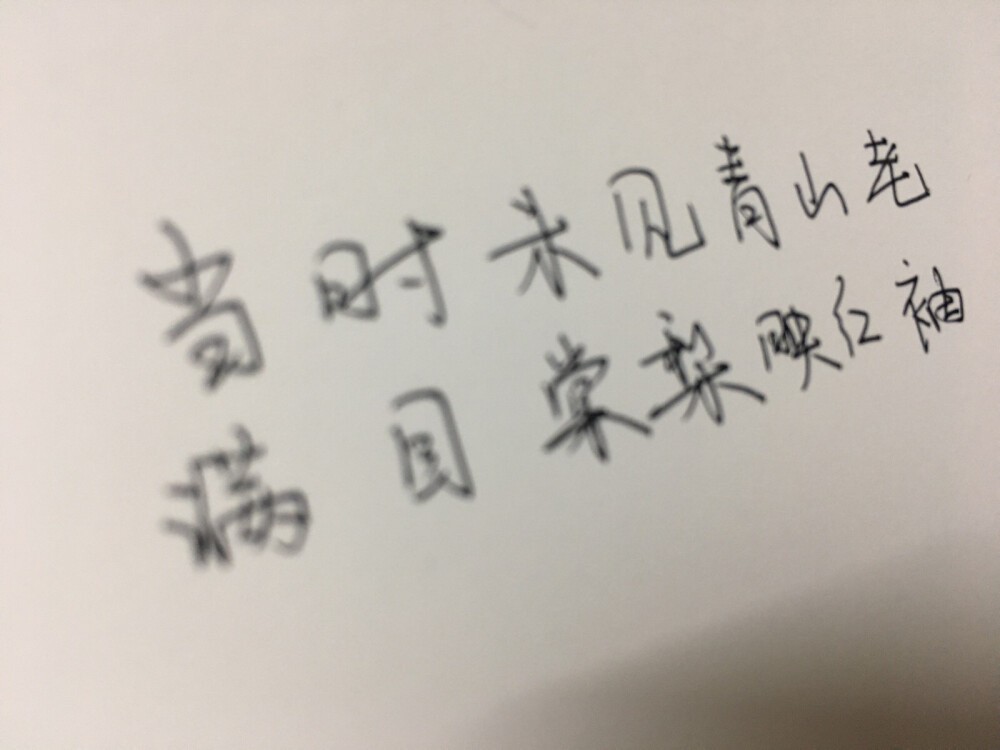 当时未见青山老
满目棠梨映红袖